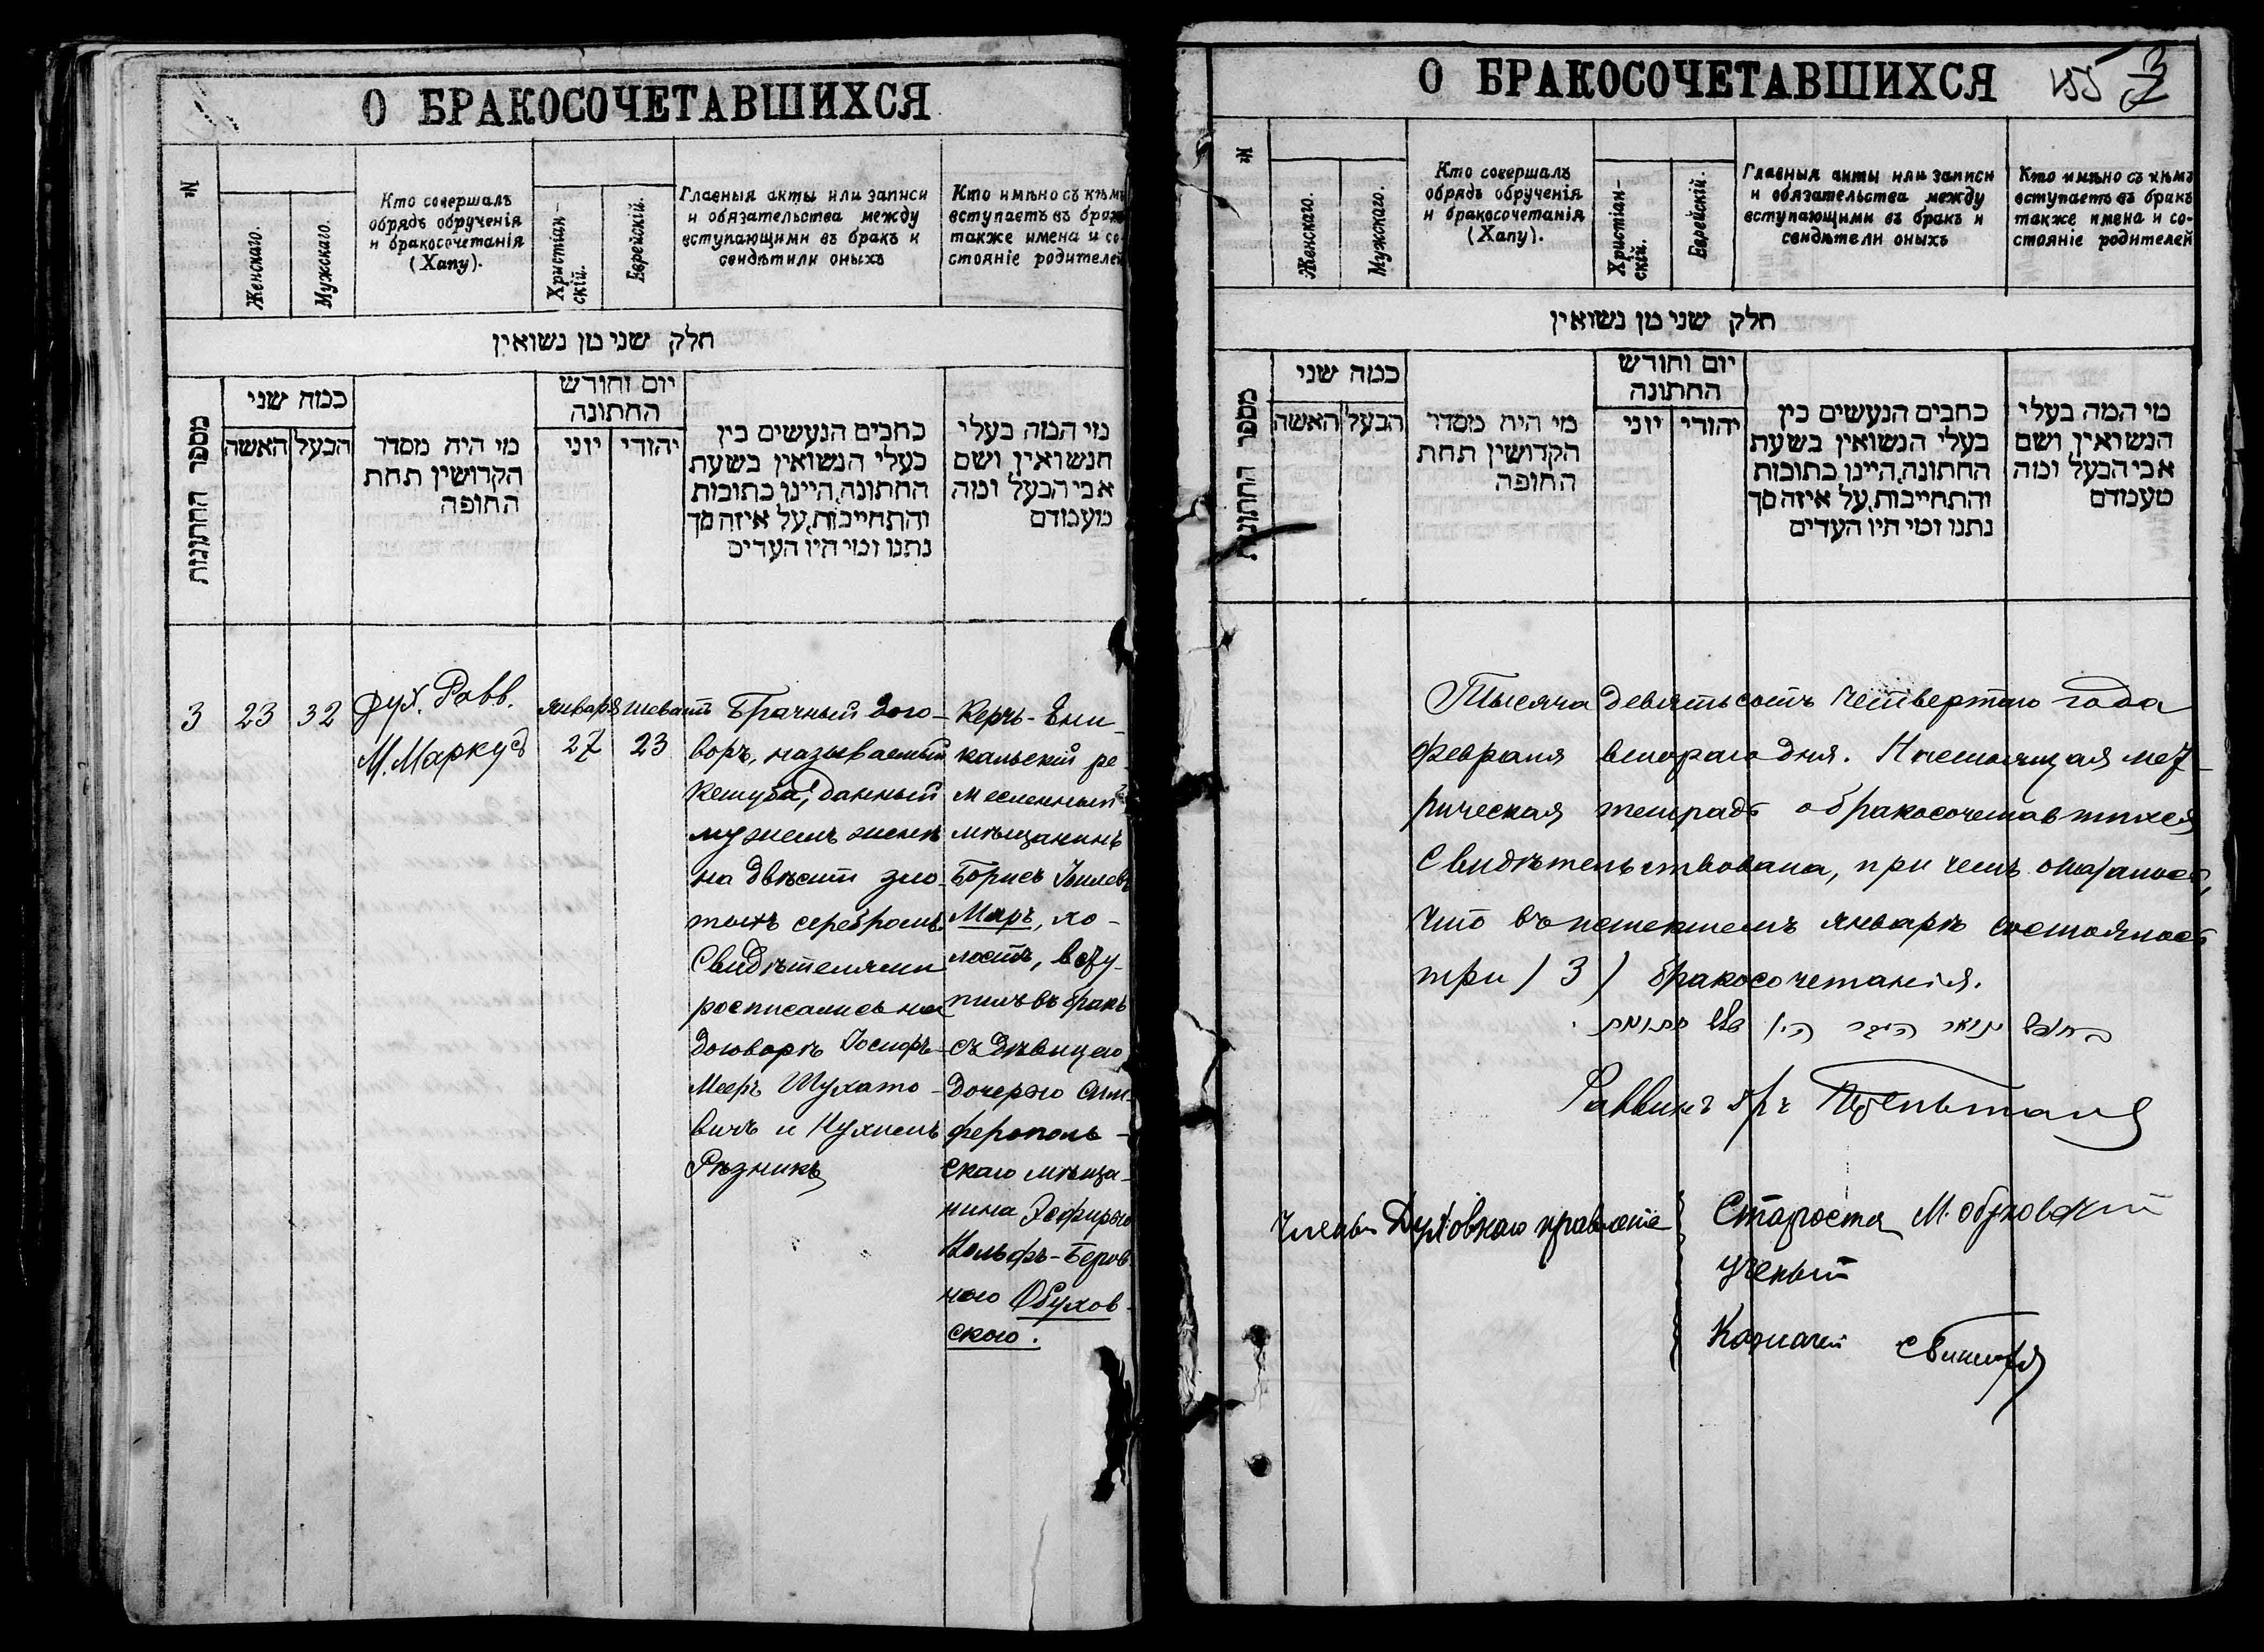 О БРАКОСОЧЕТАВШИХСЯ
№
Женскаго.
Мужскаго.
Кто совершалъ
обрядъ обрученія
и бракосочетанія
(Хапу).
Христіан-
скій.
Еврейскій.
Главныя акты или записи
и обязательства между
вступающими въ бракъ и
свидѣтили оныхъ
Кто имѣно съ кѣмъ
вступаетъ въ бракъ
также имена и со-
стояніе родителей
חלק שני מן נשואין
מספר החתונות
כמה שני
האשה
הבעל
מי היה מסדר
הקדושין תחת
החופה
יום וחודש
החתונה
יוני
יהודי
כתבים הנעשים בין
בעלי הנשואין בשעת
החתונה, היינו כתובות
והתחייבות, על איזה סך
נתנו ומי היו העדים
מי המה בעלי
הנשואין ושם
אבי הבעל ומה
מעמדם
3
23
32
Дух. Равв.
М. Маркусъ
Января
27
Шеватъ
23
Брачный дого-
воръ, называемый
Кетуба, данный
мужемъ женѣ
на двѣсти зло-
тыхъ серебромъ.
Свидѣтелями
росписались на
договорѣ Іосифъ-
Мееръ Шухато-
вичъ и Нухимъ
Рѣзникъ
Керчь-Ени-
кальскій ре-
месленный
мѣщанинъ
Борисъ
Маръ, хо-
лостъ, всту-
пилъ въ бракъ
съ дѣвицею
дочерью Сим-
ферополь-
скаго мѣща-
нина Эсфирью
Вольфъ-Беров-
ною Обухов-
скою.
О БРАКОСОЧЕТАВШИХСЯ
155
№
Женскаго.
Мужскаго.
Кто совершалъ
обрядъ обрученія
и бракосочетанія
(Хапу).
Христіан-
скій.
Еврейскій.
Главныя акты или записи
и обязательства между
вступающими въ бракъ и
свидѣтели оныхъ
Кто имѣно съ кѣмъ
вступаетъ въ бракъ
также имена и со-
стояніе родителей
חלק שני מן נשואין
מספר החתונות
כמה שני
האשה
הבעל
מי היה מסדר
הקדושין תחת
החופה
יום וחודש
החתונה
יוני
יהודי
כתבים הנעשים בין
בעלי הנשואין בשעת
החתונה, היינו כתובות
והתחייבות, על איזה סך
נתנו ומי היו העדים
מי המה בעלי
הנשואין ושם
אבי הבעל ומה
מעמדם
Тысяча девятьсотъ четвертаго года
февраля второго дня. Настоящая мет-
рическая тетрадь о бракосочетавшихся
свидѣтельствована, при чемъ оказалось,
что въ истекшемъ январѣ состоялось
три (3) бракосочетанія.
Раввинъ
Члены Духовнаго правленія
Староста М. Обуховскій
Ученый
Казначей